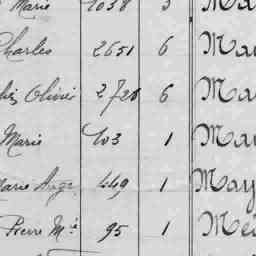 Marie 1038 3 Ma
Charles 2651 6 Ma
Olivier 2728 6 Ma
Marie 403 1 Mau
Marie Ange 449 1 May
Pierre Mie 95 1 Me